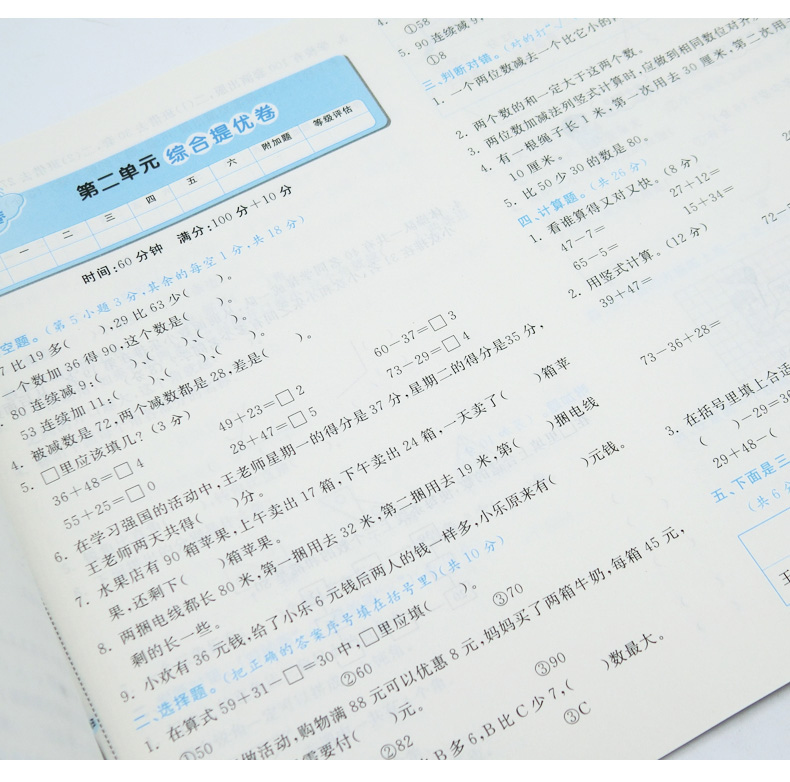 第二单元 综合提优卷
一 二 三 四 五 六 附加题 等级评估
时间:60分钟 满分:100分+10分
空题。(第5小题3分,其余的每空1分,共18分)
7比19多( ),29比63少( )。
一个数加36得90,这个数是( )。
80连续减9:( )、( )、( )、( )。
53连续加11:( )、( )、( )、( )。
4. 被减数是72,两个减数都是28,差是( )。
5. □里应该填几?(3分)
36+48=□4 49+23=□2 60-37=□3
55+25=□0 28+47=□5 73-29=□4
6. 在学习强国的活动中,王老师星期一的得分是37分,星期二的得分是35分,
王老师两天共得( )分。
7. 水果店有90箱苹果,上午卖出17箱,下午卖出24箱,一天卖了( )箱苹
果,还剩下( )箱苹果。
8. 两捆电线都长80米,第一捆用去32米,第二捆用去19米,第( )捆电线
剩的长一些。
9. 小欢有36元钱,给了小乐6元钱后两人的钱一样多,小乐原来有( )元钱。
二、选择题。(把正确的答案序号填在括号里)(共10分)
1. 在算式59+31-□=30中,□里应填( )。
①50 ②60 ③70
做活动,购物满88元可以优惠8元,妈妈买了两箱牛奶,每箱45元,
需要付( )元。
②82 ③90
B多6,B比C少7,( )数最大。
③C
4.
①58
5. 90连续减9,
①8
三、判断对错。(对的打“√
1. 一个两位数减去一个比它小的
2. 两个数的和一定大于这两个数。
3. 两位数加减法列竖式计算时,应做到相同数位对齐
4. 有一根绳子长1米,第一次用去30厘米,第二次用
10厘米。
5. 比50少30的数是80。
四、计算题。(共26分)
1. 看谁算得又对又快。(8分)
47-7= 27+12=
65-5= 15+34=
2. 用竖式计算。(12分)
39+47= 72-
73-36+28=
3. 在括号里填上合适
( )-29=36
29+48-(
五、下面是三
(共6分
王